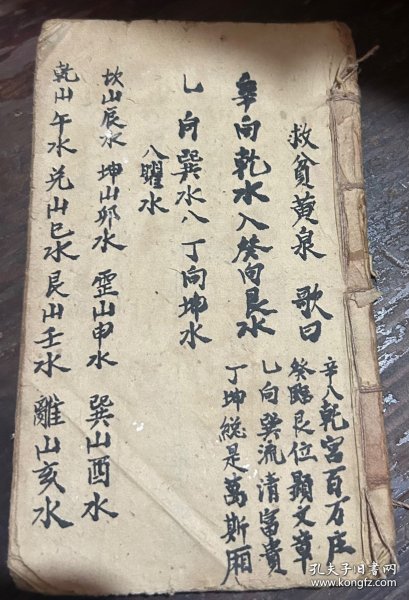 救貧黄泉 歌曰
辛入乾宮百万庄
癸臨艮位顯文章
乙向巽流清富貴
丁坤総是萬斯廂
辛向乾水入癸向艮水
乚向巽水八丁向坤水
八曜水
坎山辰水 坤山夘水 震山申水 巽山酉水
乾山午水 兑山巳水 艮山壬水 離山亥水
孔夫子旧书网
www.kongfz.com